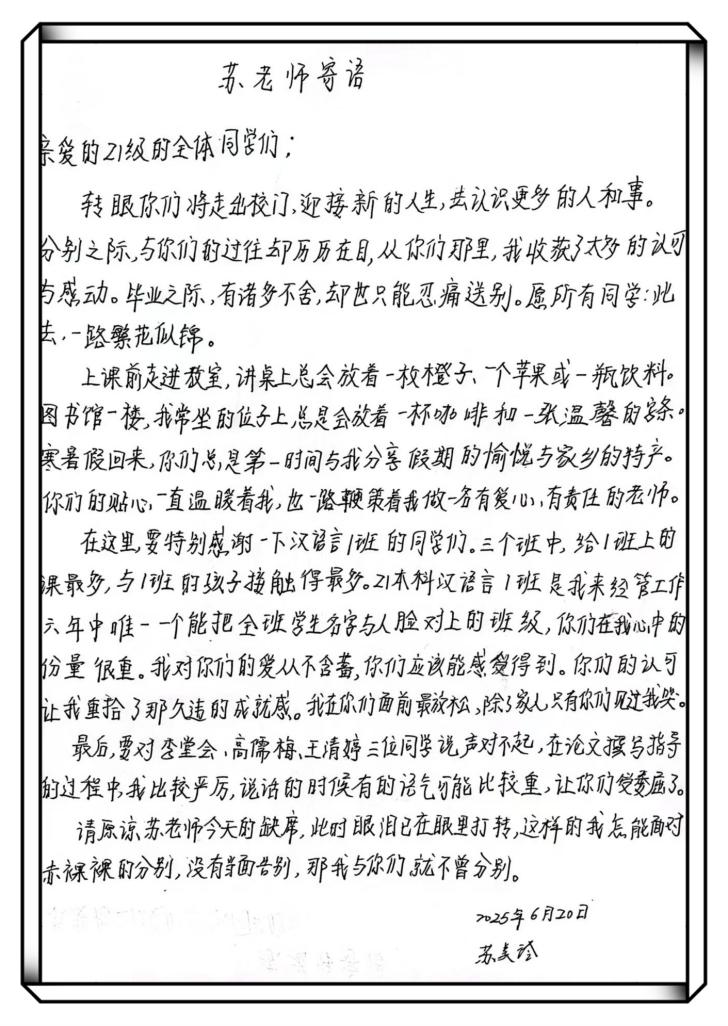 苏老师寄语
亲爱的21级的全体同学们；
转眼你们将走出校门，迎接新的人生，去认识更多的人和事。
分别之际，与你们的过往却历历在目，从你们那里，我收获了太多的认可
与感动。毕业之际，有诸多不舍，却也只能忍痛送别。愿所有同学：此
去，一路繁花似锦。
上课前走进教室，讲桌上总会放着一枚橙子、一个苹果或一瓶饮料。
图书馆一楼，我常坐的位子上，总是会放着一杯咖啡和一张温馨的字条。
寒暑假回来，你们总是第一时间与我分享假期的愉悦与家乡的特产。
你们的贴心，一直温暖着我，也一路鞭策着我做一名有爱心、有责任的老师。
在这里，要特别感谢一下汉语言1班的同学们。三个班中，给1班上的
课最多，与1班的孩子接触得最多。21本科汉语言1班是我来经管工作
六年中唯一一个能把全班学生名字与人脸对上的班级，你们在我心中的
份量很重。我对你们的爱从不含蓄，你们应该能感受得到。你们的认可
让我重拾了那久违的成就感。我在你们面前最放松，除了家人只有你们见过我哭。
最后，要对李堂会、高儒梅、王清婷三位同学说声对不起，在论文撰写指导
的过程中，我比较严厉，说话的时候有的语气可能比较重，让你们受委屈了。
请原谅苏老师今天的缺席，此时眼泪已在眼里打转，这样的我怎能面对
赤裸裸的分别，没有当面告别，那我与你们就不曾分别。
2025年6月20日
苏美玲